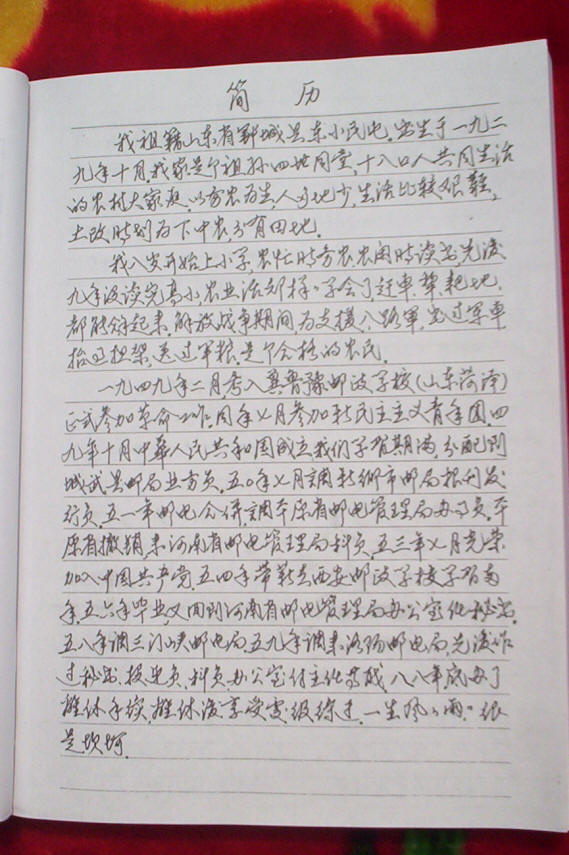 简 历
我祖籍山东省鄄城县东小民屯，出生于一九二
九年十月，我家是个祖孙四世同堂，十八口人共同生活
的农村大家庭，以劳农为生，人多地少，生活比较艰难，
土改时划为下中农，分有田地。
我八岁开始上小学，农忙时劳农农闲时读书，先后
九年没读完高小，农业活都样样学会了，赶车、犁、耙地，
都能拿起来，解放战争期间，为支援八路军，出过军车
抬过担架，送过军粮，是个合格的农民。
一九四九年二月考入冀鲁豫邮政学校（山东菏泽）
正式参加革命工作，同年七月参加新民主主义青年团，四
九年十月中华人民共和国成立，我们学习期满，分配到
城武县邮局业务员，五〇年七月调新乡市邮局报刊发
行员，五一年邮电合併，调平原省邮电管理局办事员，平
原省撤销来河南省邮电管理局科员，五三年七月光荣
加入中国共产党，五四年带薪去西安邮政学校学习两
年，五六年毕业，又回到河南省邮电管理局办公室任秘书，
五八年调三门峡邮电局，五九年调来洛阳邮电局，先后作
过秘书、报史员、科员、办公室付主任等职，八八年底办了
离休手续，离休后享受处级待遇，一生风风雨雨，很
是坎坷。